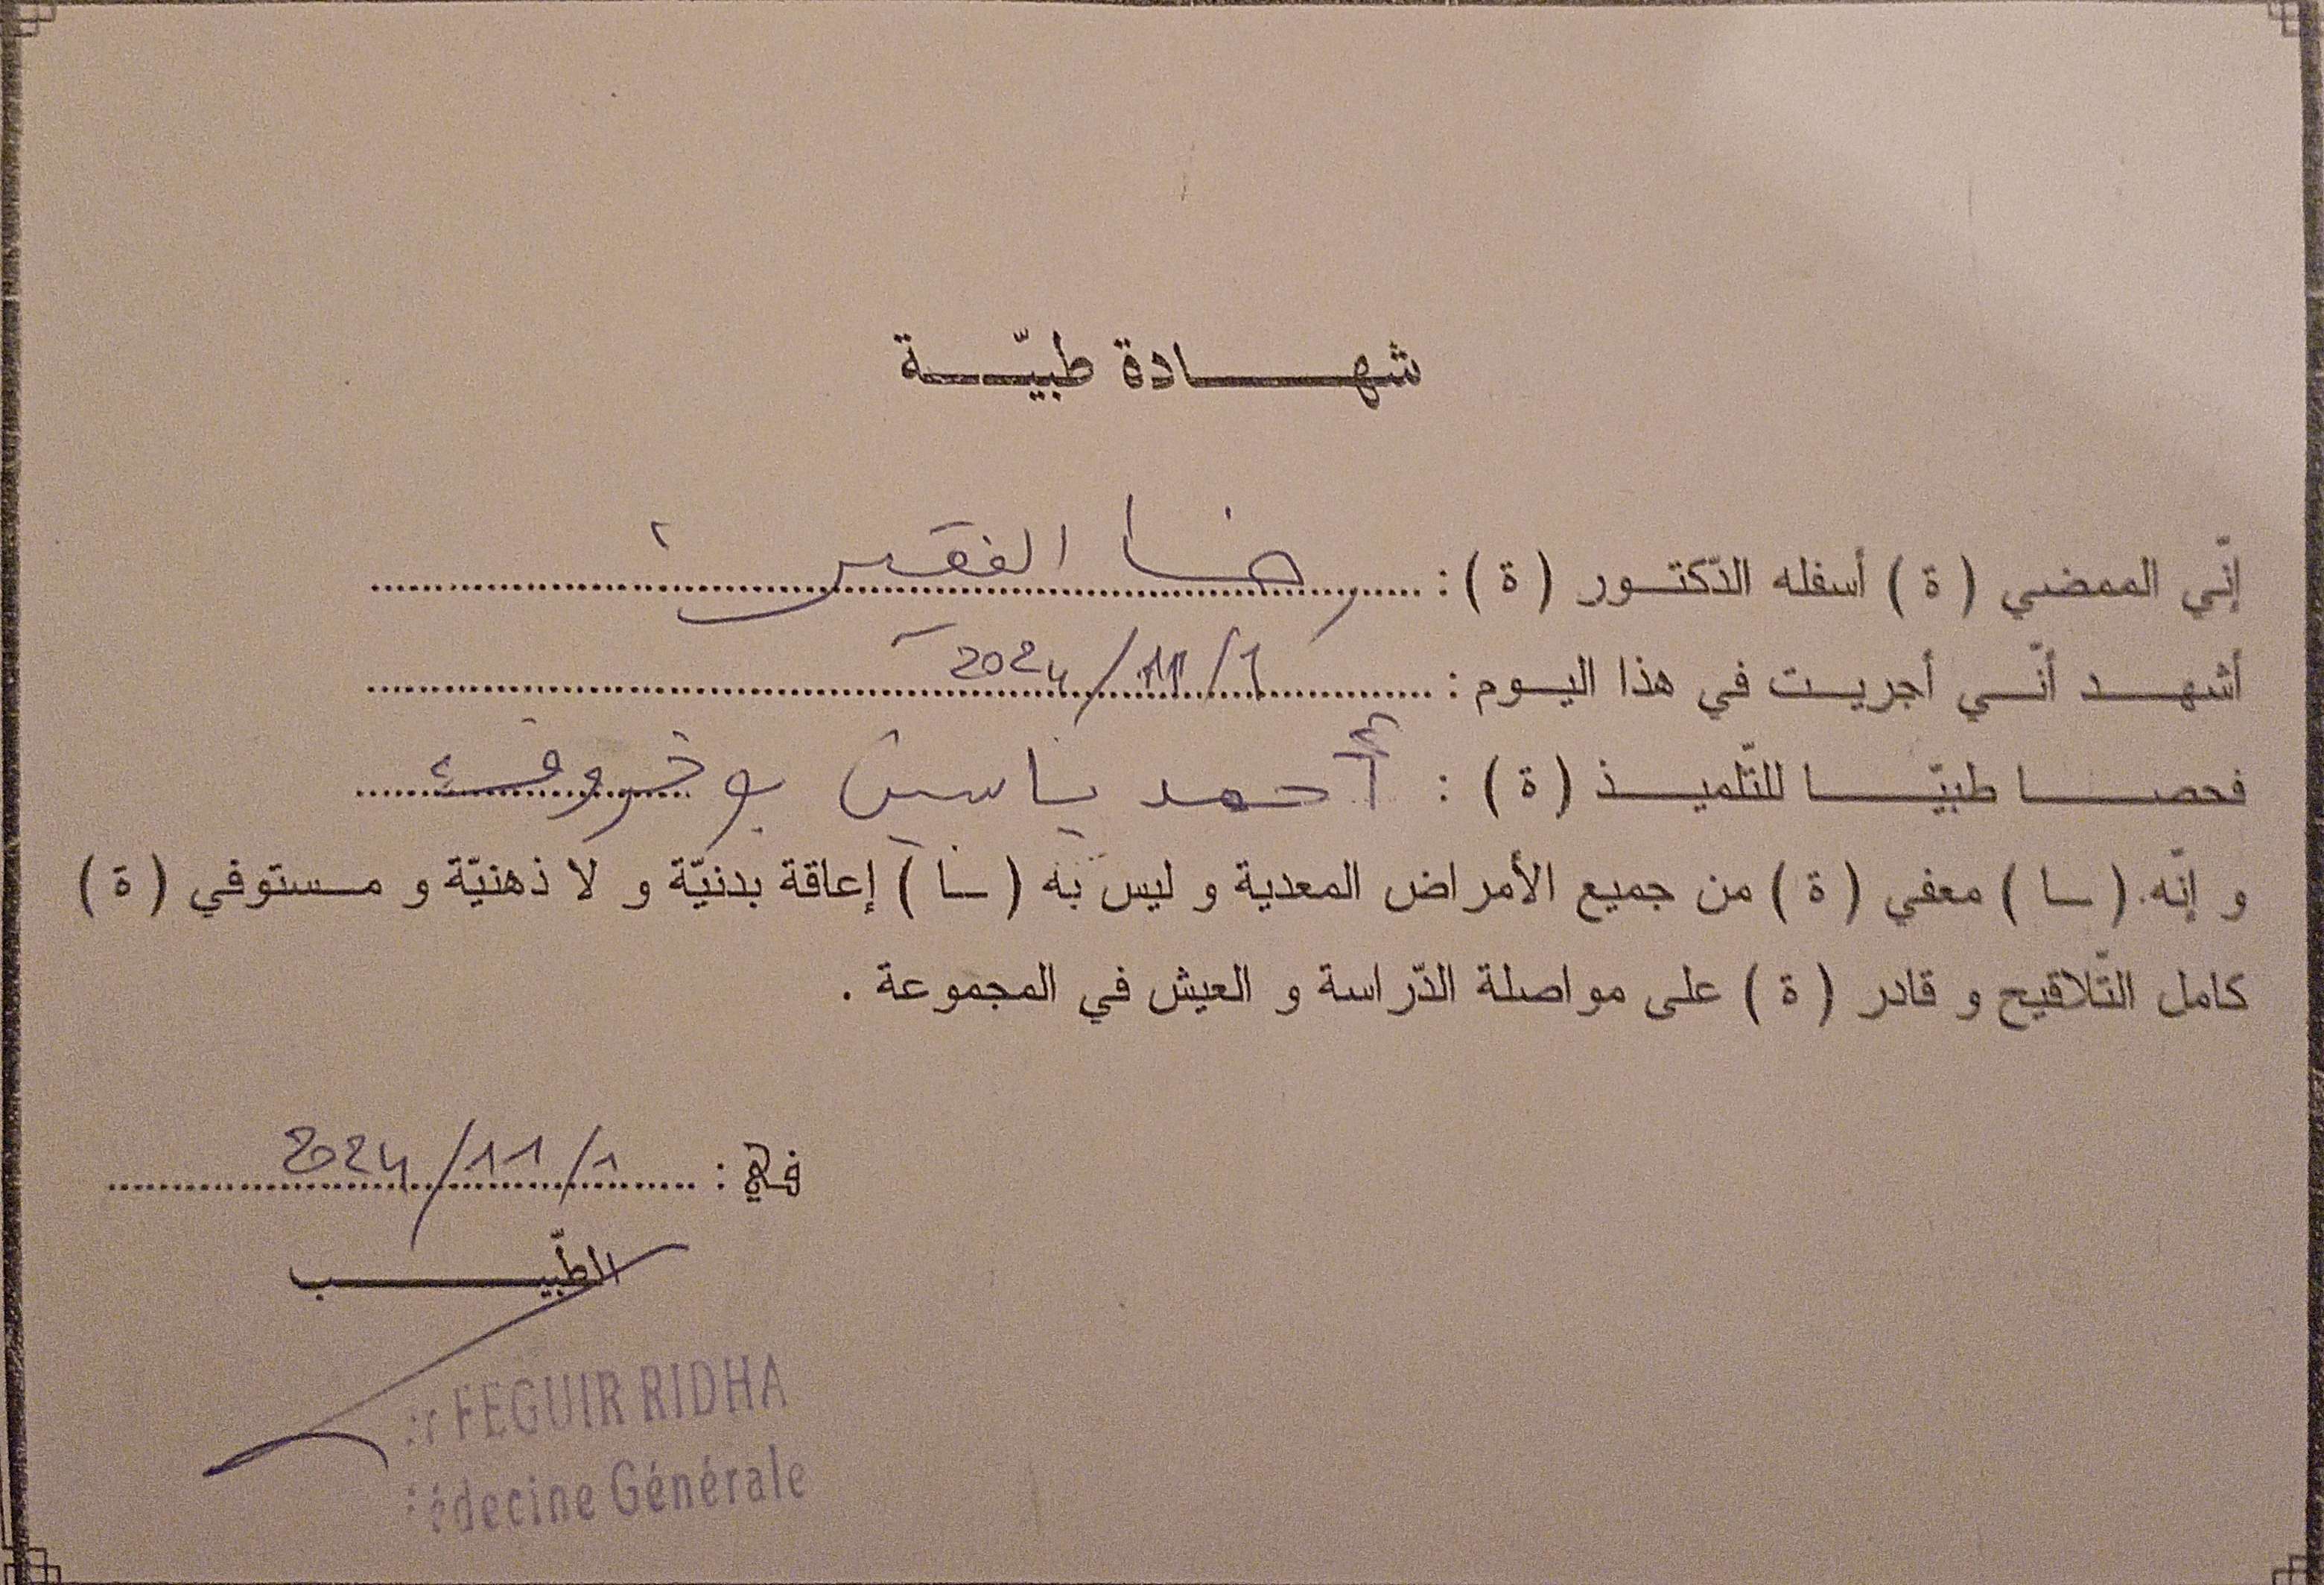 شهادة طبيّة
إنّي الممضي ( ة ) أسفله الدّكتور ( ة ) : رضا الفقير
أشهد أنّي أجريت في هذا اليوم : 1/11/2024
فحصا طبيّا للتّلميذ ( ة ) : أحمد ياسين بو
و إنّه ( ـا ) معفي ( ة ) من جميع الأمراض المعدية و ليس به ( ـا ) إعاقة بدنيّة و لا ذهنيّة و مستوفي ( ة )
كامل التّلاقيح و قادر ( ة ) على مواصلة الدّراسة و العيش في المجموعة .
في : 1/11/2024
الطّبيب
FEGUIR RIDHA
édecine Générale